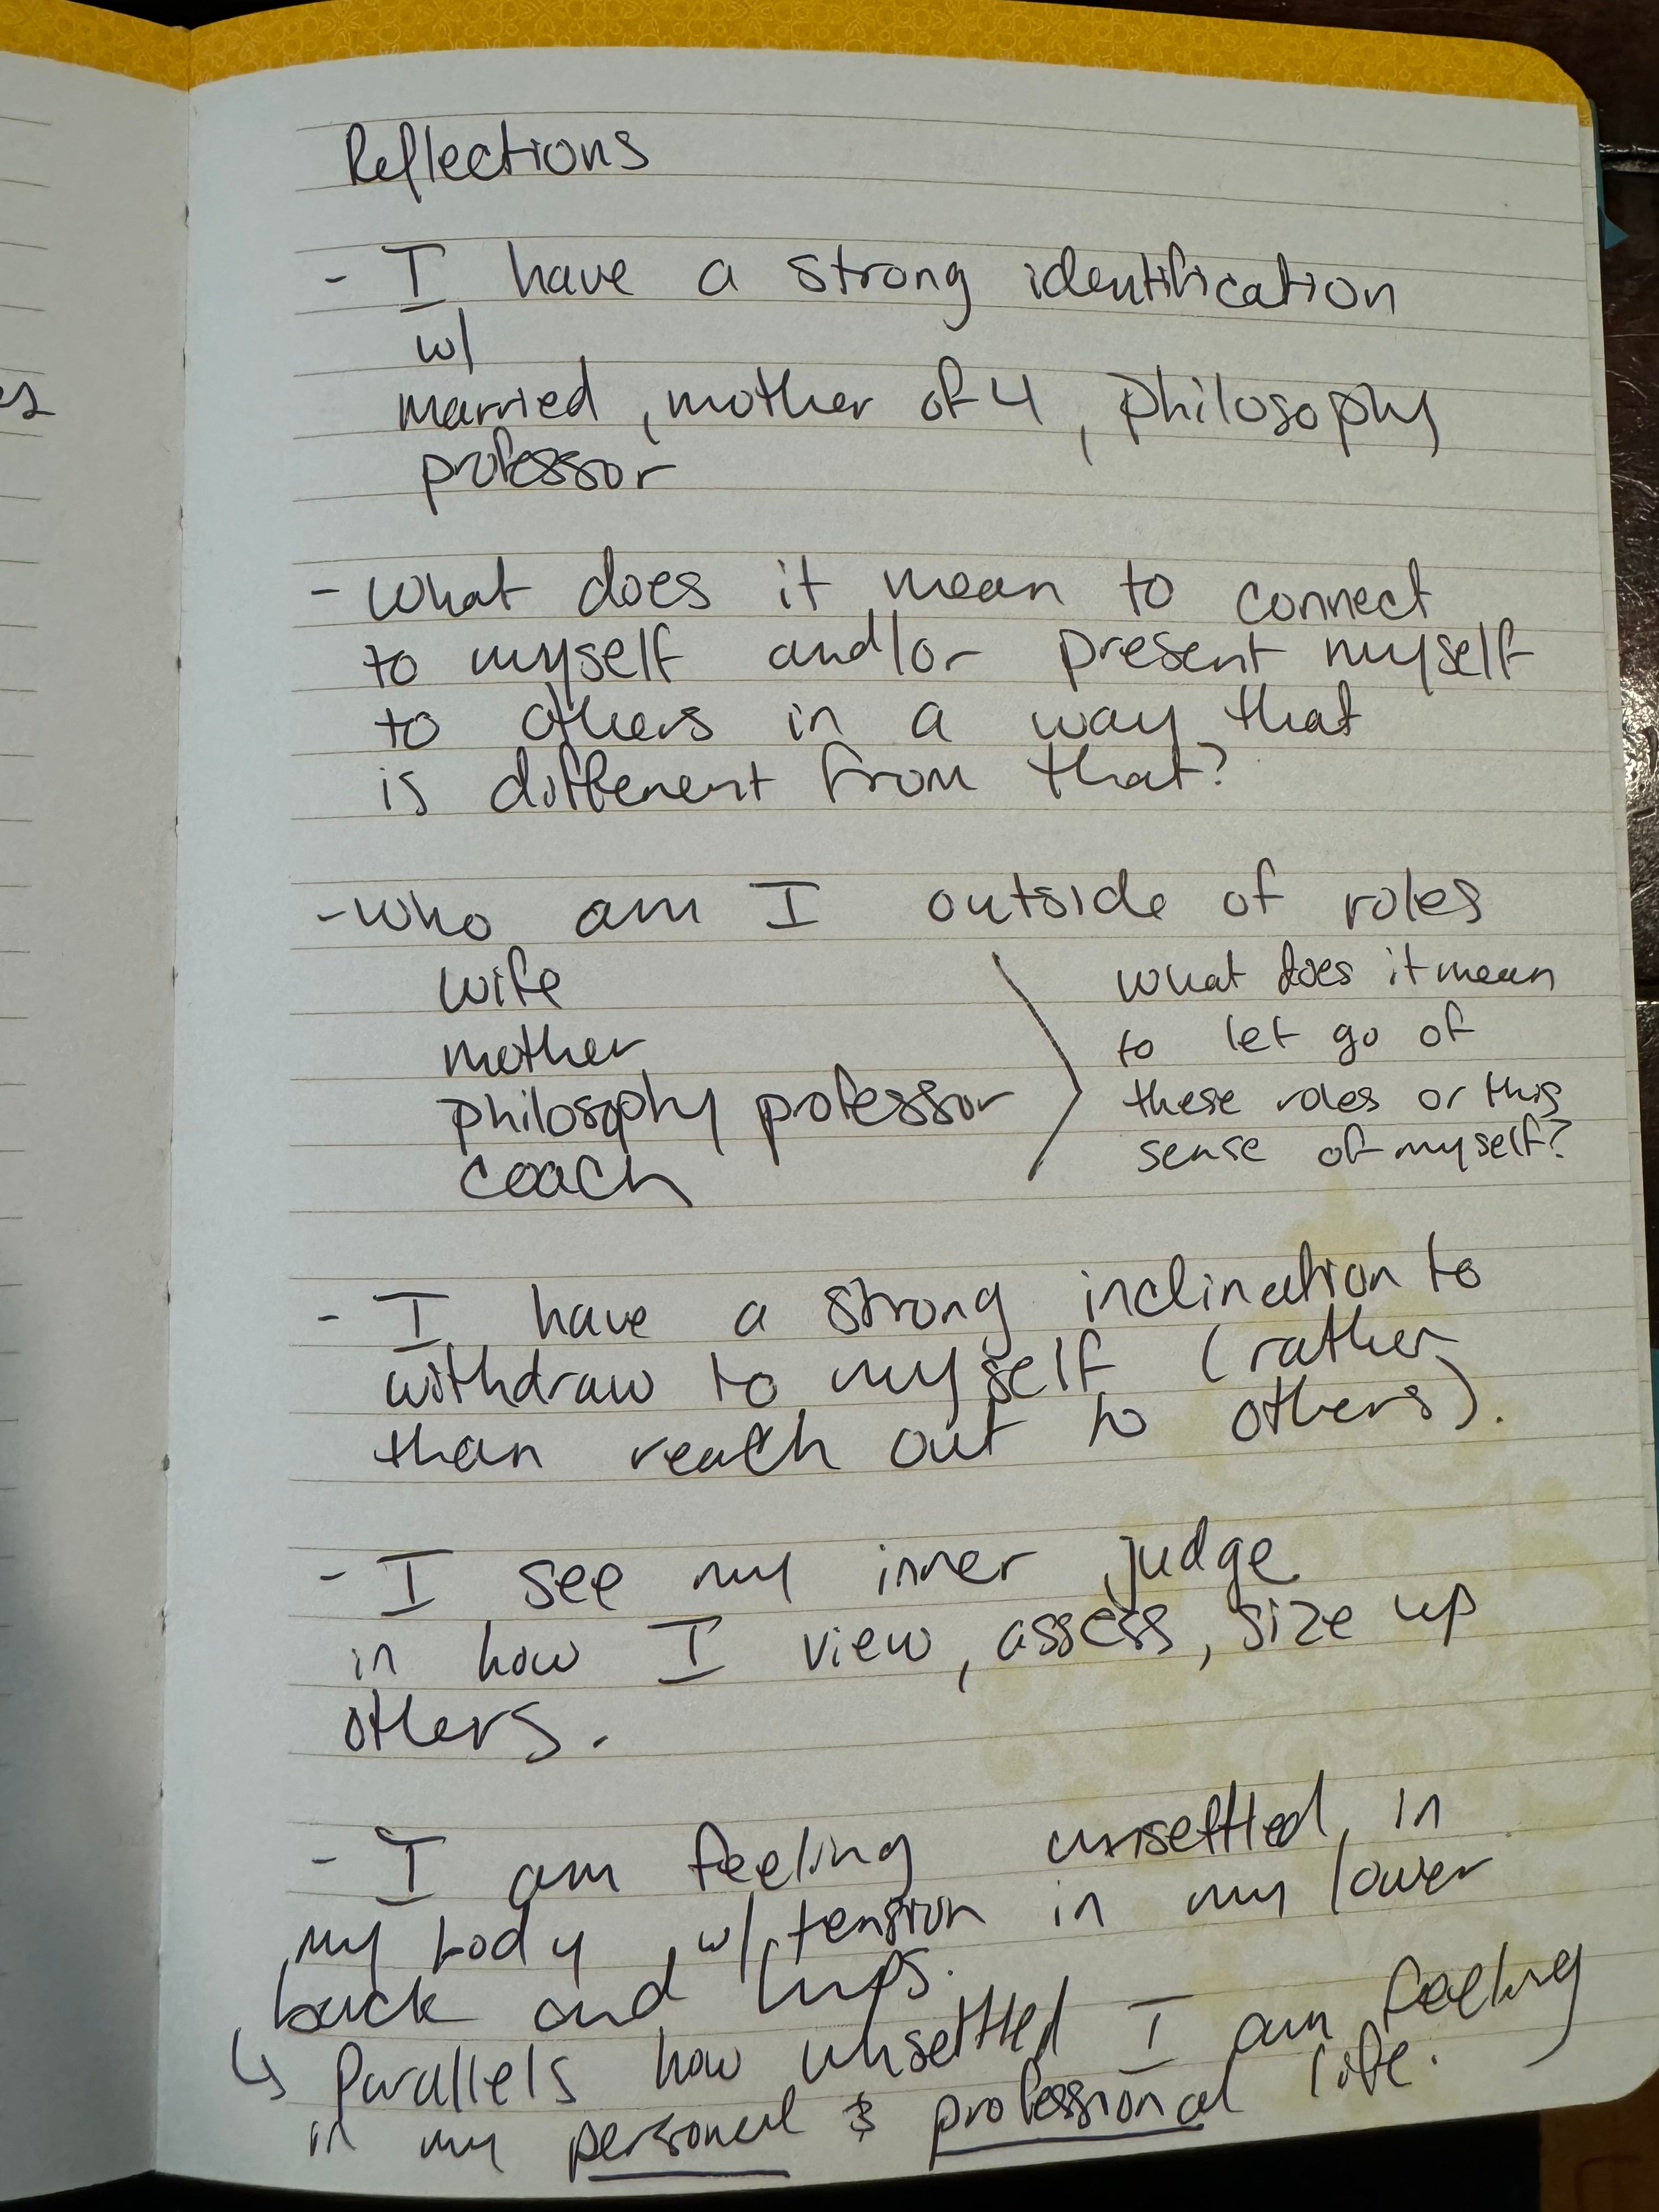 Reflections
- I have a strong identification
w/
married, mother of 4, philosophy
professor
- What does it mean to connect
to myself and/or present myself
to others in a way that
is different from that?
- Who am I outside of roles
wife
mother
philosophy professor
coach
What does it mean
to let go of
these roles or this
sense of myself?
- I have a strong inclination to
withdraw to myself (rather
than reach out to others).
- I see my inner judge
in how I view, assess, size up
others.
- I am feeling unsettled, in
my body, w/ tension in my lower
back and hips.
↳ Parallels how unsettled I am feeling
in my personal & professional life.